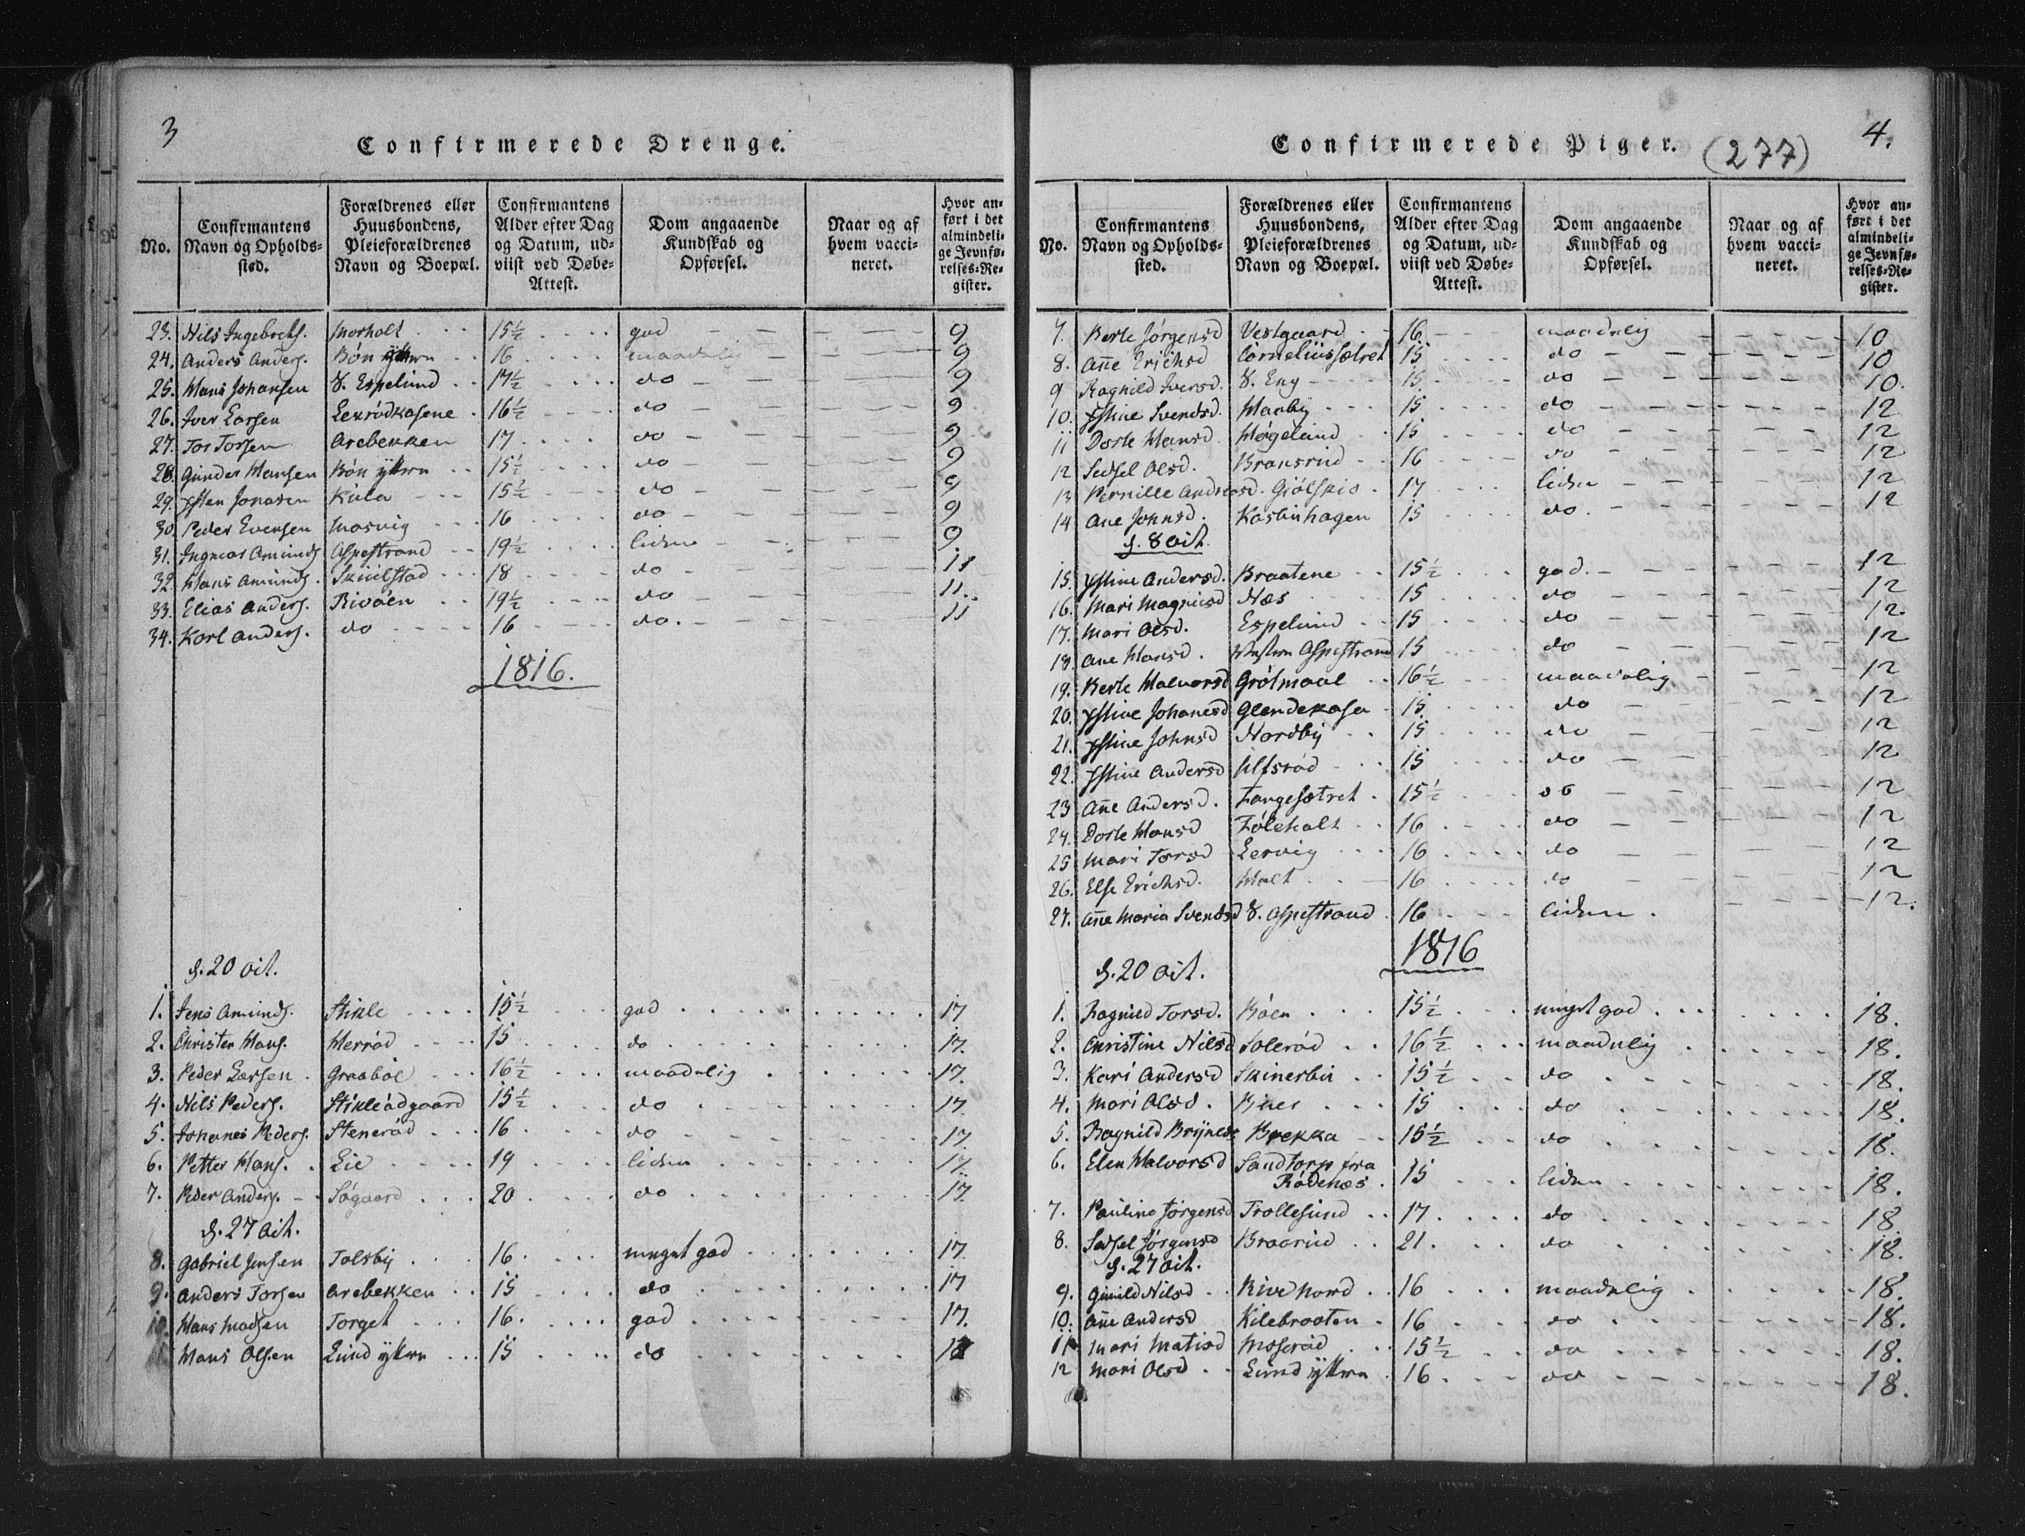 3
Confirmerede Drenge.
No. Confirmantens Navn og Opholds-sted. Forældrenes eller Huusbondens, Pleieforældrenes Navn og Boepæl. Confirmantens Alder efter Dag og Datum, ud-viist ved Døbe-Attest. Dom angaaende Kundskab og Opførsel. Naar og af hvem vacci-neret. Hvor an-ført i det almindeli-ge Jevnfø-relses-Re-gister.
23. Nils Ingebrets. Morholt 15½ god 9
24. Anders Anders. Bøn yttern 16 maadelig 9
25. Hans Johansen V. Espelund 17½ do 9
26. Iver Larsen Lerrødkasene 16½ do 9
27. Tor Torsen Arebekken 17 do 9
28. Gunder Hansen Bøn yttern 15½ do 9
29. Østen Jonasen Kula 15½ do 9
30. Peder Evensen Mosvig 16 do 9
31. Ingvar Amunds. Aspestrand 19½ liden 9
32. Hans Amunds. Skuulstad 18 do 11
33. Elias Anders. Rivøen 19½ do 11.
34. Karl Anders. do 16 do. 11
1816.
d. 20 Oct.
1. Jens Amunds. Stikle 15½ god 17.
2. Christen Hans. Herrød 15 do 17.
3. Peder Larsen Graabøl 16½ maadelig 17.
4. Nils Peders. Stikleødgaard 15½ do 17.
5. Johanes Peders. Stenerød 16 do 17.
6. Petter Hans. Lie 19 liden 17.
7. Peder Anders. Søgaard 20 do 17.
d. 27 Oct.
8. Gabriel Jensen Tolsby 16. meget god 17.
9. Anders Torsen Arebekken 15 do 17
10. Hans Madsen Torget 16. god 17.
11. Hans Olsen Lund yttern 15 do
4.
Confirmerede Piger. (277)
No. Confirmantens Navn og Opholds-sted. Forældrenes eller Huusbondens, Pleieforældrenes Navn og Boepæl. Confirmantens Alder efter Dag og Datum, ud-viist ved Døbe-Attest. Dom angaaende Kundskab og Opførsel. Naar og af hvem vacci-neret. Hvor an-ført i det almindeli-ge Jevnfø-relses-Re-gister.
7. Berte Jørgensd Vestgaard 16. maadelig 10
8. Añe Erichsd Corneliussætret 15 do 10
9 Ragnild Iversd. V. Eng 15 do 10.
10. Østine Svendsd. Haaby 15 do 12
11 Dorte Hansd. Høgelund 15 do 12
12 Sidsel Olsd. Bransrud 16 do 12
13 Pernille Andreasd. Giølsiø 17 liden 12
14 Ane Johnsd. Kasbuhagen 15 do. 12
d. 8 Oct.
15. Østine Andersd. Braatene 15½ god. 12
16. Mari Magnusd Næs 15 do 12
17. Mari Olsd. Espelund 15 do 12.
18. Ane Hansd. Vestern Aspestrand 15 do 12
19. Berte Halvorsd Grølmaal 16½ maadelig 12
20. Østine Johanesd Glendekasa 15 do 12
21. Østine Johnsd Nordby 15 do 12
22. Østine Andersd Ulfsrød 15 do 12
23 Añe Andersd. Tangesætret 15½ do 12
24. Dorte Hansd Tøleholt 16 do 12
25 Mari Torsd Lervig 16 do 12
26. Else Erichsd. Holt 16 do 12
27. Añe Maria Svendsd V. Aspestrand 16 liden. 12.
1816
d. 20 Oct.
1. Ragnild Torsd. Bøen 15½ meget god 18.
2. Christine Nilsd Solerød 16½ maadelig 18.
3. Kari Andersd Skinerbu 15½ do 18.
4. Mari Olsd. Buer 15 do 18.
5. Ragnild Brynelsd Brekka 15½ do 18.
6. Elen Halvorsd Sandtorp fra Rødenæs. 15 liden 18.
7. Pauline Jørgensd Trollesund 17. do 18.
8. Sidsel Jørgensd Braarud 21. do 18.
d. 27 Oct.
9. Gunild Nilsd Rive nord 16 maadelig 18.
10. Añe Andersd Kilebraaten 16 do 18.
11 Mari Matisd Moserød 15½ do 18.
12 Mari Olsd Lund yttern 16 do 18.